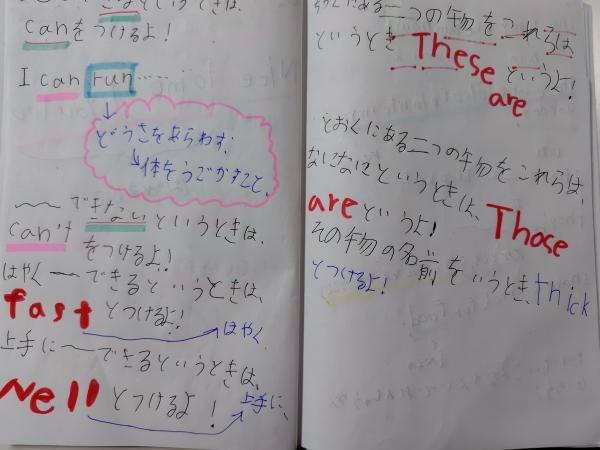 できるというときは、
canをつけるよ!
I can run……
どうさをあらわす、
体をうごかすこと、
〜できないというときは、
can't をつけるよ!
はやく〜できるというときは、
fast とつけるよ! はやく
上手に〜できるというときは、
Well とつけるよ! 上手に、
ちかくにある二つの物をこれらは
というとき These というよ!
are
とおくにある二つの物をこれらは、
なになにというときは、Those
are というよ!
その物の名前をいうとき、thick
とつけるよ!